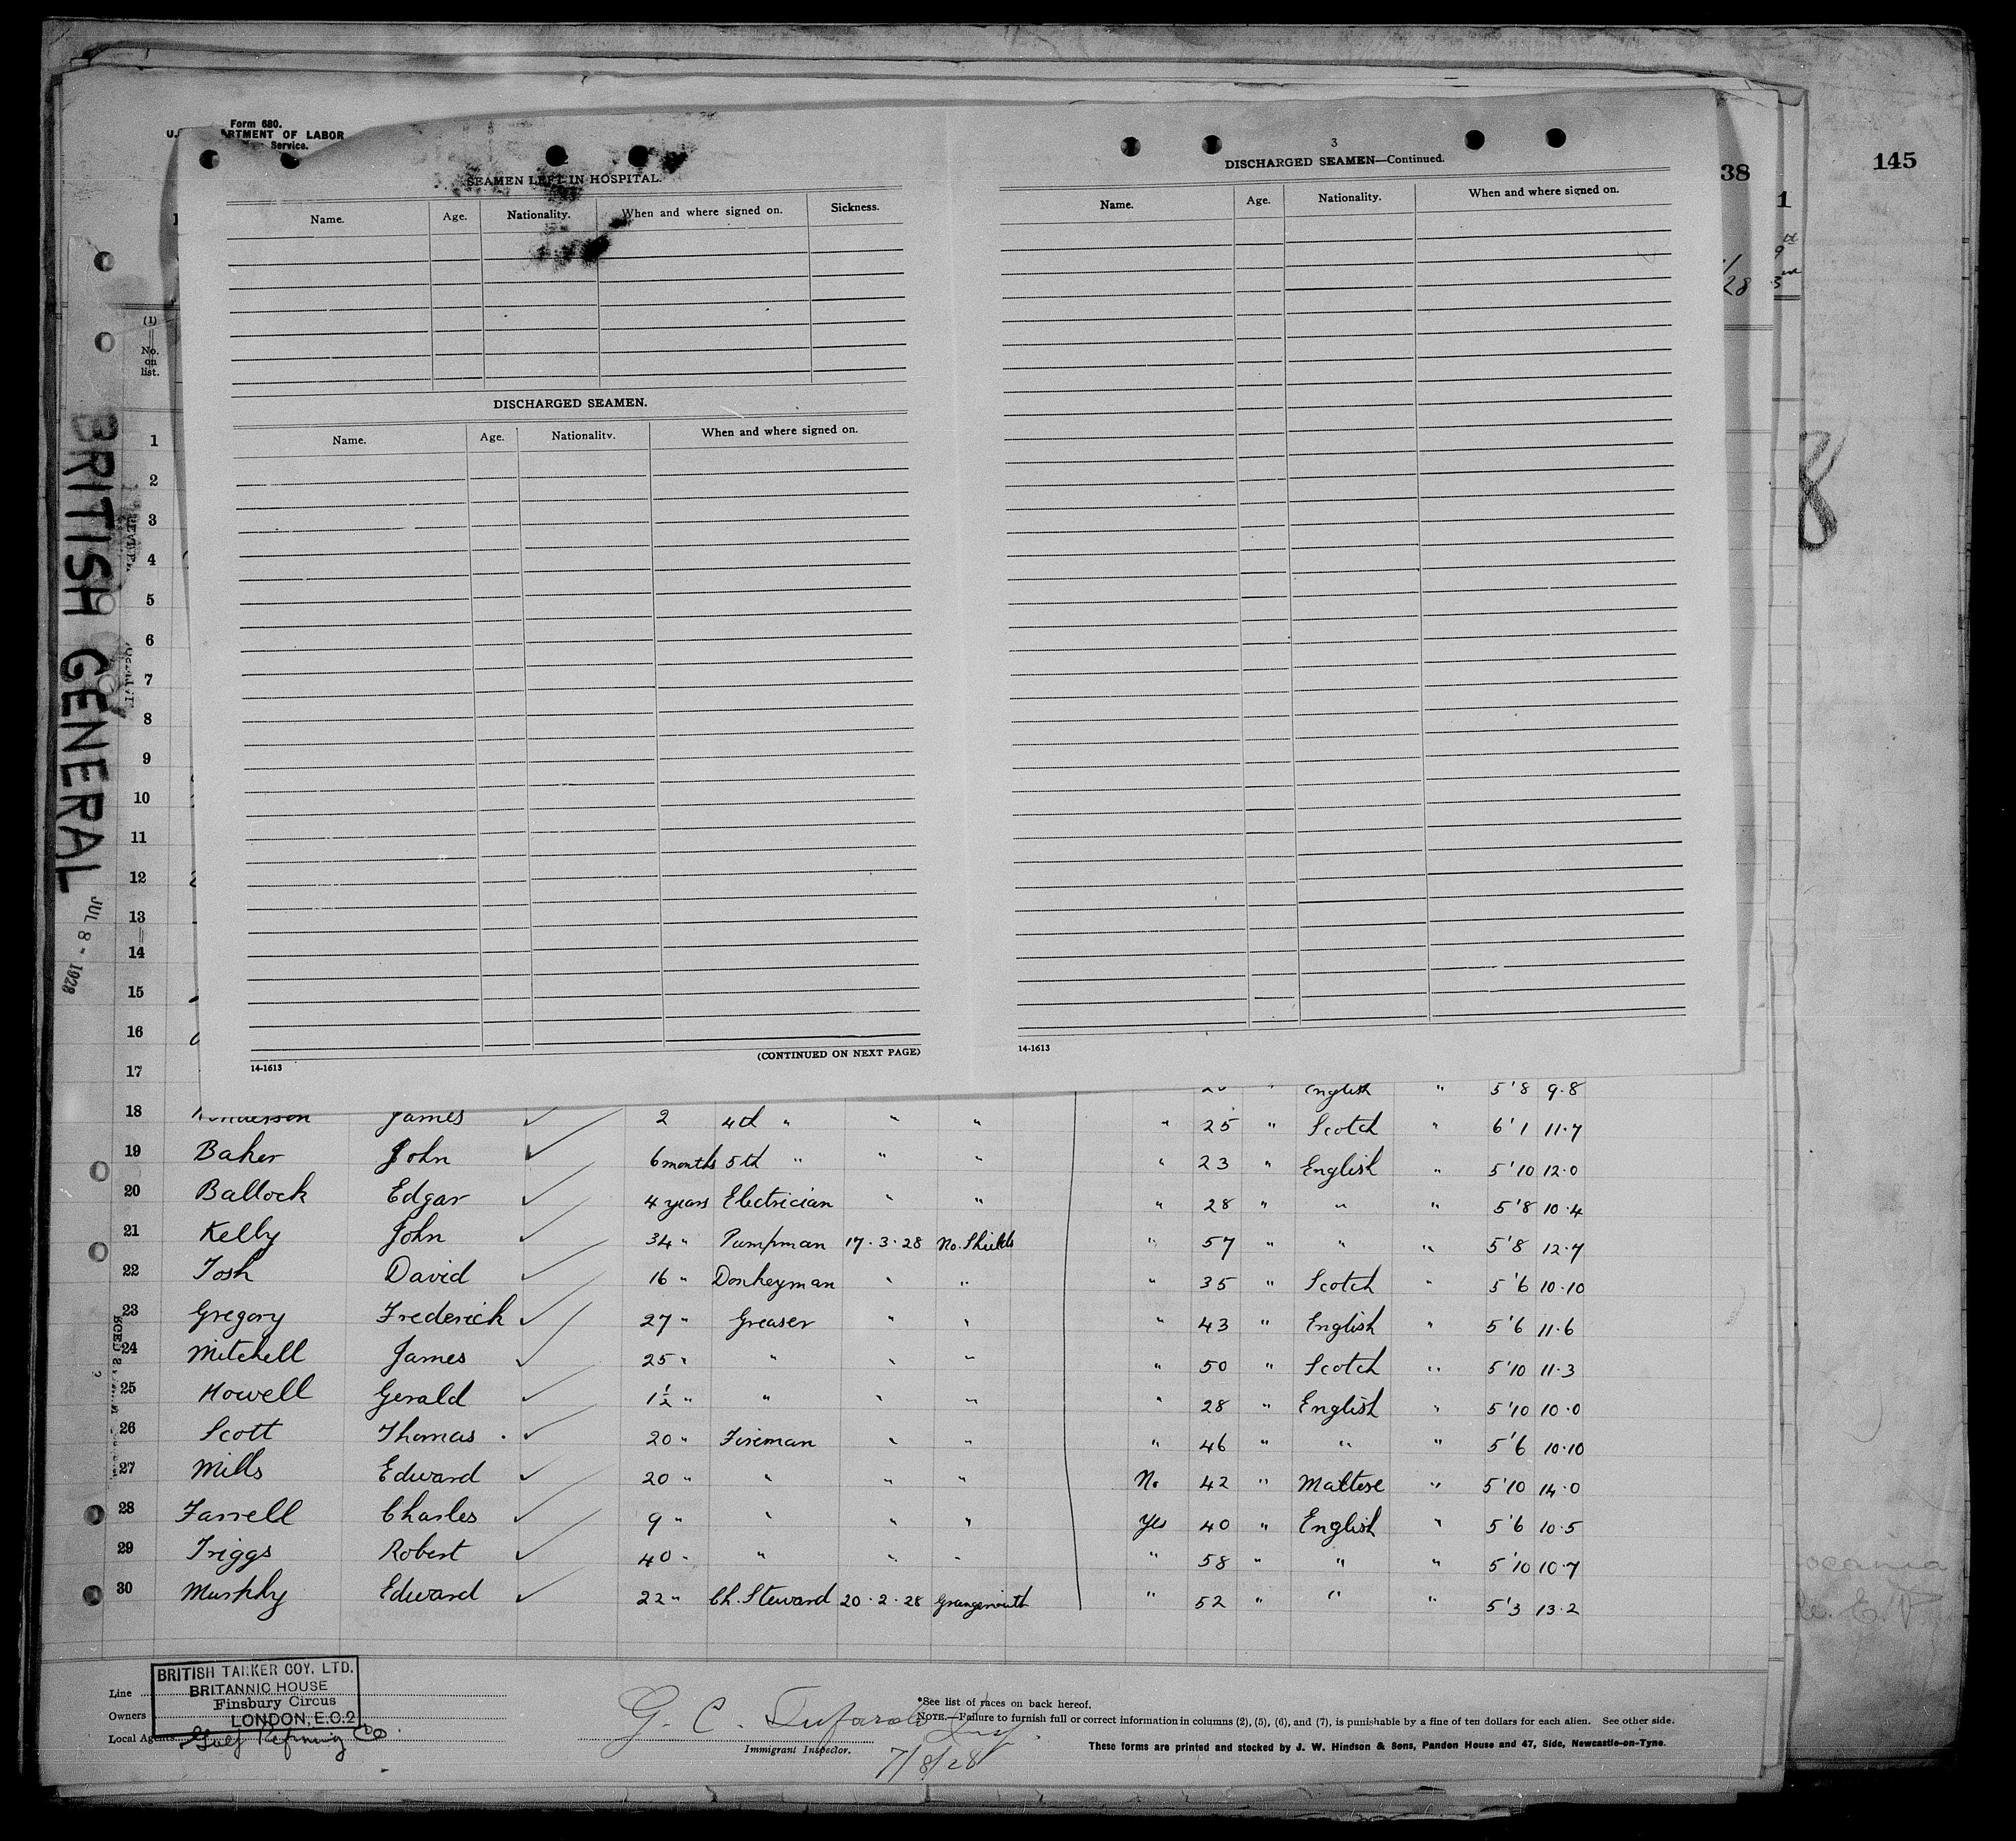 Form 680.
DEPARTMENT OF LABOR
Service.
SEAMEN LEFT IN HOSPITAL.
Name. Age. Nationality. When and where signed on. Sickness.
DISCHARGED SEAMEN.
Name. Age. Nationality. When and where signed on.
(CONTINUED ON NEXT PAGE)
14-1613
3
DISCHARGED SEAMEN—Continued.
Name. Age. Nationality. When and where signed on.
14-1613
38
145
1
28
8
BRITISH GENERAL
JUL 8 - 1928
(1)
No. on list.
1
2
3
4
5
6
7
8
9
10
11
12
13
14
15
16
17 English " 5'8 9.8
18 James ✓ 2 4th " " " " 25 " Scotch " 6'1 11.7
19 Baker John ✓ 6 months 5th " " " " 23 " English " 5'10 12.0
20 Ballock Edgar ✓ 4 years Electrician " " " 28 " " " 5'8 10.4
21 Kelly John ✓ 34 " Pumpman 17.3.28 No. Shields " 57 " " " 5'8 12.7
22 Tosh David ✓ 16 " Donkeyman " " " 35 " Scotch " 5'6 10.10
23 Gregory Frederick ✓ 27 " Greaser " " " 43 " English " 5'6 11.6
24 Mitchell James ✓ 25 " " " " " 50 " Scotch " 5'10 11.3
25 Howell Gerald ✓ 1½ " " " " " 28 " English " 5'10 10.0
26 Scott Thomas . ✓ 20 " Fireman " " " 46 " " " 5'6 10.10
27 Mills Edward ✓ 20 " " " " No 42 " Maltese " 5'10 14.0
28 Farrell Charles ✓ 9 " " " " Yes 40 " English " 5'6 10.5
29 Triggs Robert ✓ 40 " " " " " 58 " " " 5'10 10.7
30 Murphy Edward ✓ 22 " Ch. Steward 20.2.28 Grangemouth " 52 " " " 5'3 13.2
Line
Owners
Local Agents Gulf Refining Co
BRITISH TANKER COY. LTD.
BRITANNIC HOUSE
Finsbury Circus
LONDON, E.C.2
G. C.
Immigrant Inspector.
7/8/28
*See list of races on back hereof.
NOTE.—Failure to furnish full or correct information in columns (2), (5), (6), and (7), is punishable by a fine of ten dollars for each alien. See other side.
These forms are printed and stocked by J. W. Hindson & Sons, Pandon House and 47, Side, Newcastle-on-Tyne.